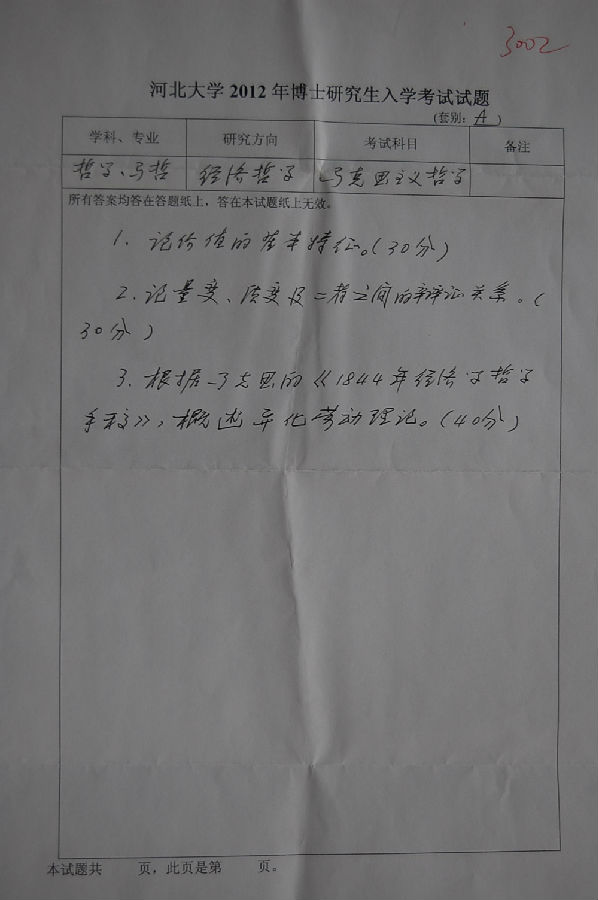 3002
河北大学 2012 年博士研究生入学考试试题
(套别：A)
学科、专业 研究方向 考试科目 备注
哲学、马哲 经济哲学 马克思主义哲学
所有答案均答在答题纸上，答在本试题纸上无效。
1. 论价值的基本特征。(30分)
2. 论量变、质变及二者之间的辩证关系。(
30分)
3. 根据马克思的《1844年经济学哲学
手稿》，概述异化劳动理论。(40分)
本试题共 页，此页是第 页。